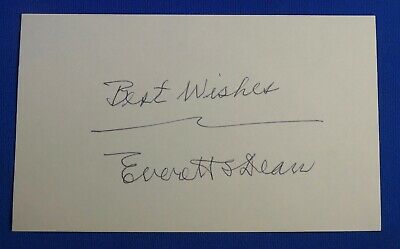 Best Wishes
Everett S Dean